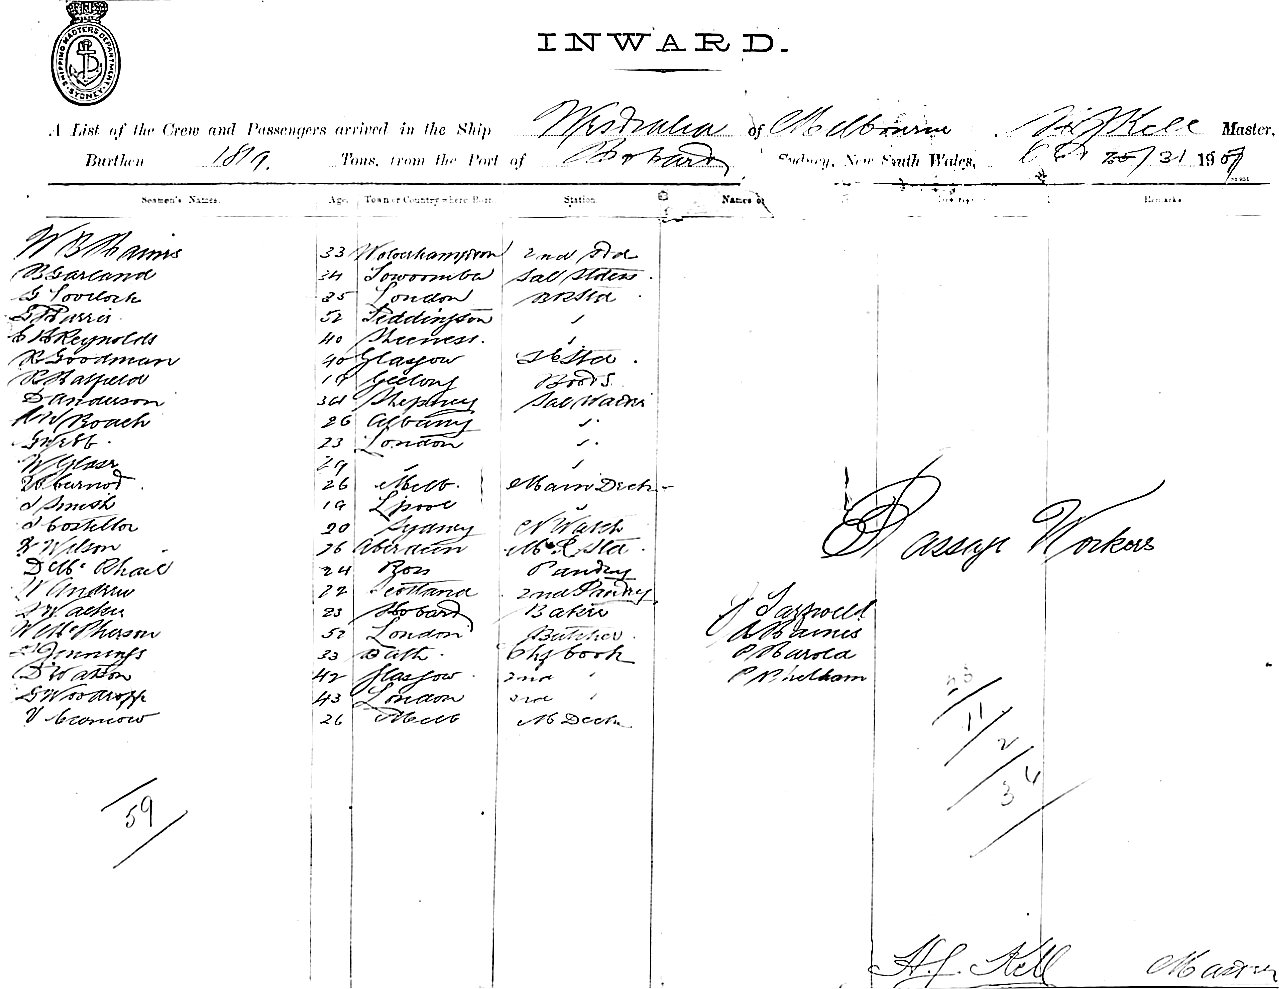 SHIPPING MASTERS DEPARTMENT SYDNEY
INWARD.
A List of the Crew and Passengers arrived in the Ship Westralia of Melbourne H J Kell Master,
Burthen 1819. Tons, from the Port of Hobart Sydney, New South Wales, 31 190
Seamen's Names. Age. Town or Country where Born Station Names of Remarks
W B Haines 33 Wolverhampton 2nd Std
R Garland 34 Towoomba Sal Stders
G Lovelock 35 London BR Std
G Purvis 52 Teddington "
C H Reynolds 40 Sheerness "
R Goodman 40 Glasgow Std
R Hatfield 19 Geelong Boots
D Anderson 36 Shepney Sal Waiter
A W Roach 26 Albany "
G Webb 23 London "
W Glass 29 " "
26 Melb. Main Deck
J Smith 19 Lpool "
J Costello 20 Sydney N Watch
Wilson 26 Aberdeen Std
D McPhail 24 Ross Pantry
W Andrew 22 Scotland 2nd Pantry
Walker 23 Hobart Baker
W McPherson 52 London Butcher
Jennings 33 Bath Chf Cook
D Watson 42 Glasgow 2nd "
G Woodroff 43 London 3rd "
26 Melb M Deck
Passage Workers
J Tarzwell
A Haines
P Harold
P Pihelham
23
11
2
36
59
H. J. Kell Master